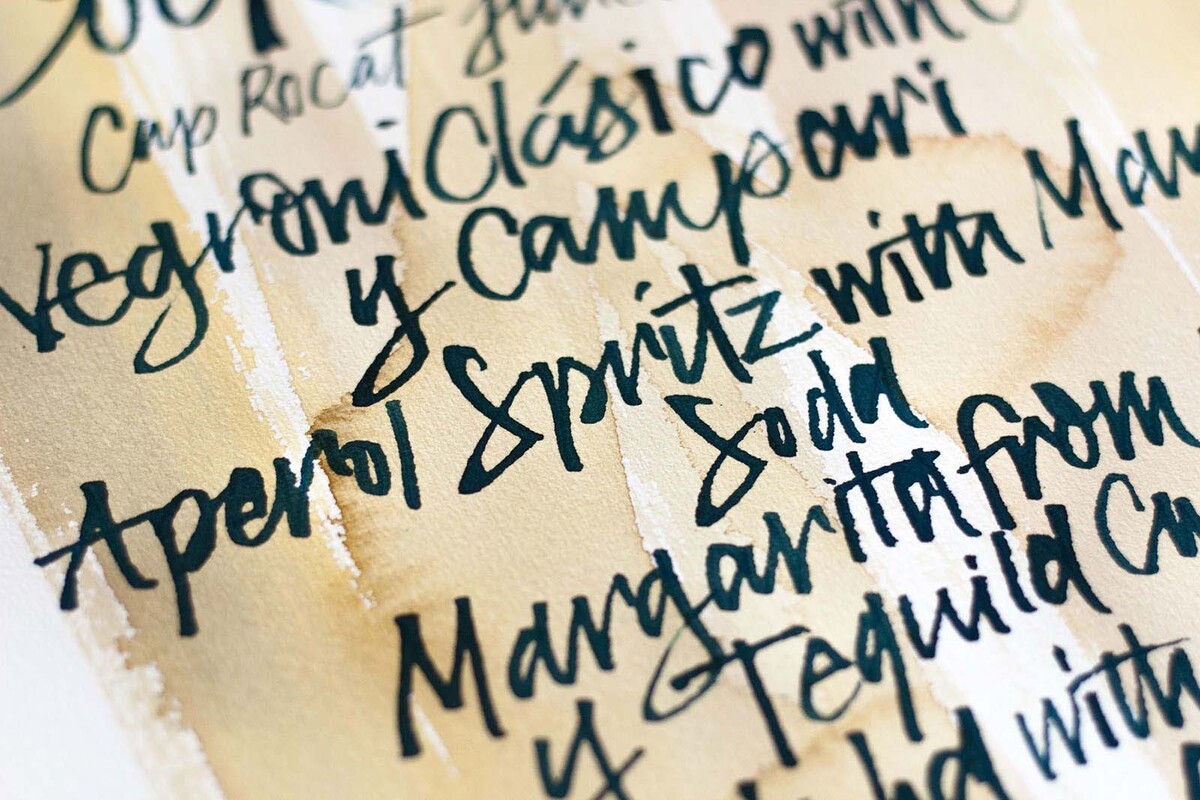 Cap Rocat
Negroni Clásico with
y Campari
Aperol Spritz with
Soda
Margarita from
y Tequila
with